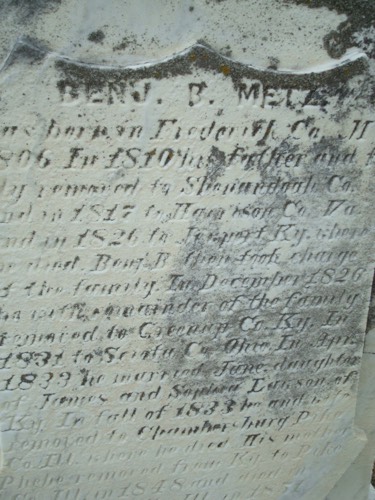 BENJ. B. METZ
was born in Frederick Co. M
1806 In 1810 his father and f
ly removed to Shenandoah Co.
and in 1817 to Harrison Co. Va
and in 1826 to Ky. where
he died. Benj. B. then took charge
of the family. In December 1826
he with remainder of the family
removed to Greenup Co. Ky. In
1831 to Sciota Co. Ohio In Apr.
1833 he married Jane, daughter
of James and Sophia Lawson of
Ky. In fall of 1833 he and wife
removed to Chambersburg Pike
Co. Ill. where he died His mother
Phebe removed from Ky. to Pike
Co. Ill. in 1848 and